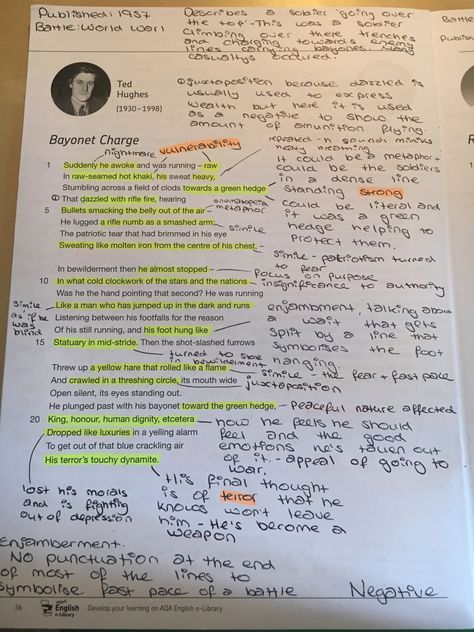 Published: 1957
Battle: World War 1
Describes a soldier 'going over
the top' - This was a soldier
climbing over there trenches
and charging towards enemy
lines carrying bayones. Many
casualtys occured.
Ted
Hughes
(1930–1998)
Juxtaposition because dazzled is
usually used to express
wealth but here it is used
as a negative to show the
amount of amunition flying.
Bayonet Charge
nightmare
vulnerability
repeated - n sound mimiks
heavy breathing
1 Suddenly he awoke and was running – raw
In raw-seamed hot khaki, his sweat heavy,
Stumbling across a field of clods towards a green hedge
That dazzled with rifle fire, hearing
5 Bullets smacking the belly out of the air –
He lugged a rifle numb as a smashed arm;
The patriotic tear that had brimmed in his eye
Sweating like molten iron from the centre of his chest, –
It could be a metaphor
could be the soldiers
in a dense line
standing strong
onomatopoeia
metaphor
could be literal and
it was a green
hedge helping to
protect them.
simile - patriotism turned
to fear
In bewilderment then he almost stopped –
focus on purpose
10 In what cold clockwork of the stars and the nations
insignificance to authority
Was he the hand pointing that second? He was running
Like a man who has jumped up in the dark and runs
Listening between his footfalls for the reason
Of his still running, and his foot hung like
15 Statuary in mid-stride. Then the shot-slashed furrows
Simile
as if he
was
blind
enjambment, talking about
a wait that gets
split by a line that
symbolises the foot
hanging.
turned to stone
in bewilderment
Threw up a yellow hare that rolled like a flame
simile - the fear + fast pace
And crawled in a threshing circle, its mouth wide
juxtaposition
Open silent, its eyes standing out.
He plunged past with his bayonet toward the green hedge,
peaceful nature affected
20 King, honour, human dignity, etcetera
Dropped like luxuries in a yelling alarm
To get out of that blue crackling air
His terror's touchy dynamite.
how he feels he should
feel and the good
emotions he's taken out
of it - appeal of going to
war.
lost his morals
and is fighting
out of depression
His final thought
is of terror that he
knows won't leave
him - He's become a
weapon
enjambement.
No punctuation at the end
of most of the lines to
symbolise fast pace of a battle
Negative
36
AQA
English
e-Library
Develop your learning on AQA English e-Library
Battle
Publish